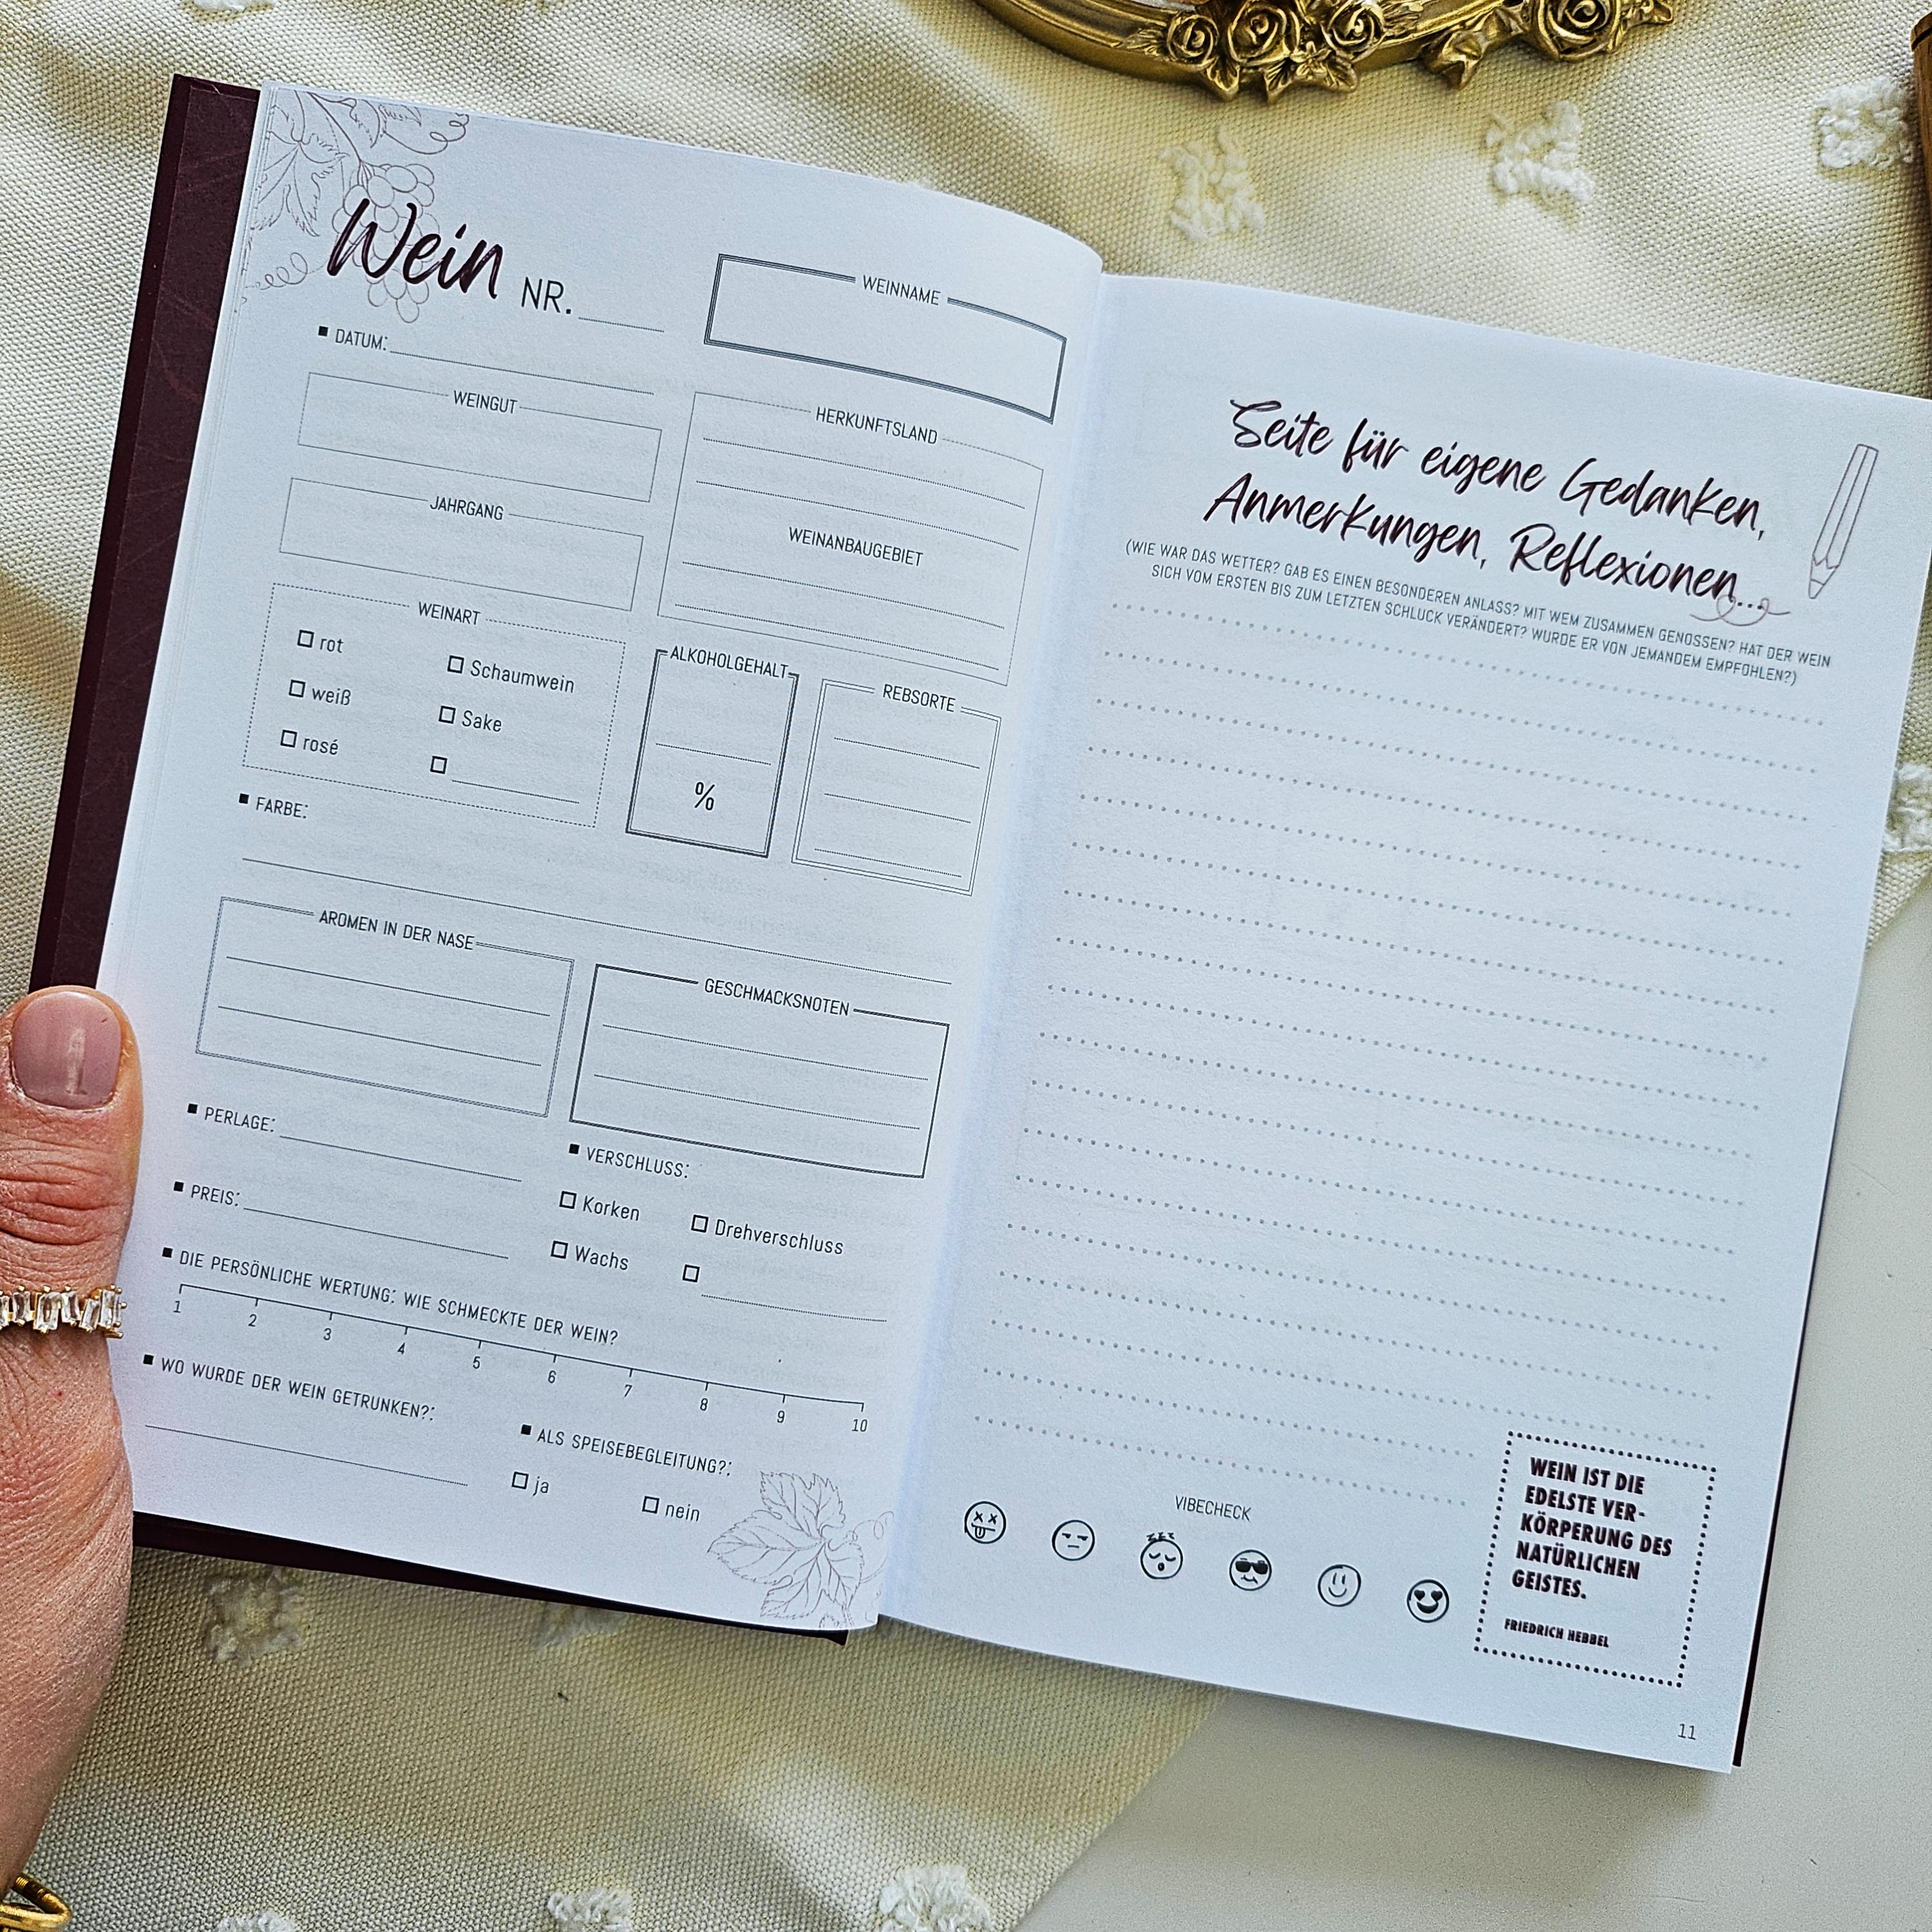 Wein NR.
WEINNAME
DATUM:
WEINGUT
HERKUNFTSLAND
JAHRGANG
WEINANBAUGEBIET
WEINART
rot
Schaumwein
weiß
Sake
rosé
ALKOHOLGEHALT
%
REBSORTE
FARBE:
AROMEN IN DER NASE
GESCHMACKSNOTEN
PERLAGE:
VERSCHLUSS:
Korken
Drehverschluss
Wachs
PREIS:
DIE PERSÖNLICHE WERTUNG: WIE SCHMECKTE DER WEIN?
1 2 3 4 5 6 7 8 9 10
WO WURDE DER WEIN GETRUNKEN?:
ALS SPEISEBEGLEITUNG?:
ja nein
Seite für eigene Gedanken,
Anmerkungen, Reflexionen...
(WIE WAR DAS WETTER? GAB ES EINEN BESONDEREN ANLASS? MIT WEM ZUSAMMEN GENOSSEN? HAT DER WEIN
SICH VOM ERSTEN BIS ZUM LETZTEN SCHLUCK VERÄNDERT? WURDE ER VON JEMANDEM EMPFOHLEN?)
VIBECHECK
ZZZ
WEIN IST DIE
EDELSTE VER-
KÖRPERUNG DES
NATÜRLICHEN
GEISTES.
FRIEDRICH HEBBEL
11